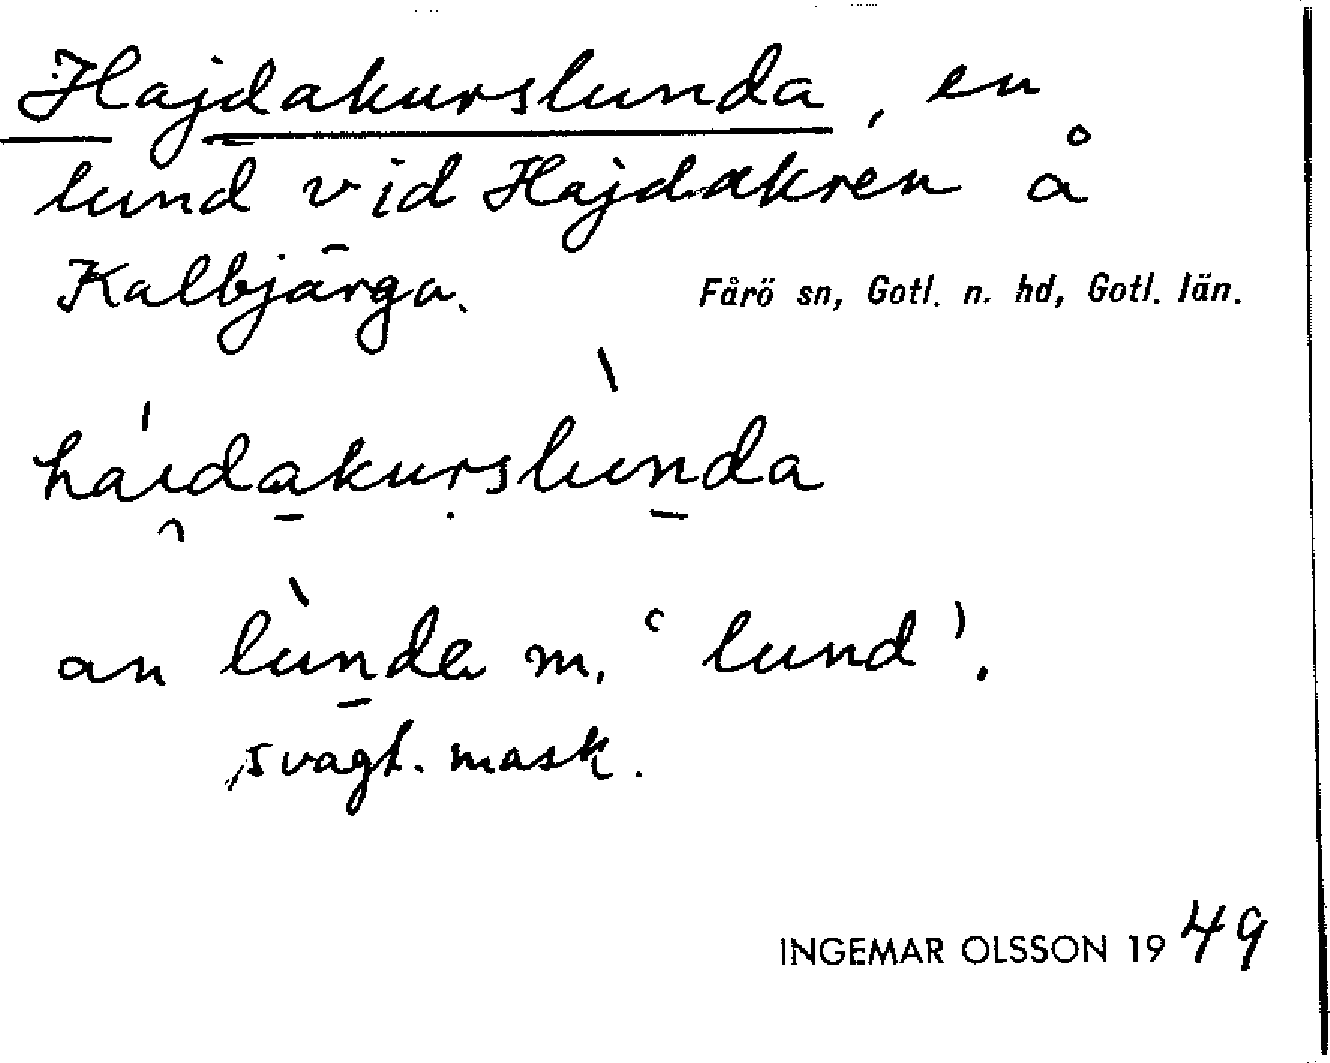 Hajdakurslunda, en
lund vid Hajdakren å
Kalbjärga. Fårö sn, Gotl. n. hd, Gotl. län.
hái̯da̱kuṛslùṉda
an lùṉda m. ‘lund’.
svagt. mask.
INGEMAR OLSSON 1949